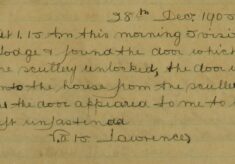 28th Dec, 190
at 1. 15 Am this morning I visi
lodge & found the door which
scullery unlocked, the door
to the house from the sculle
the door appeared to me to
ft unfastened
Lawrence